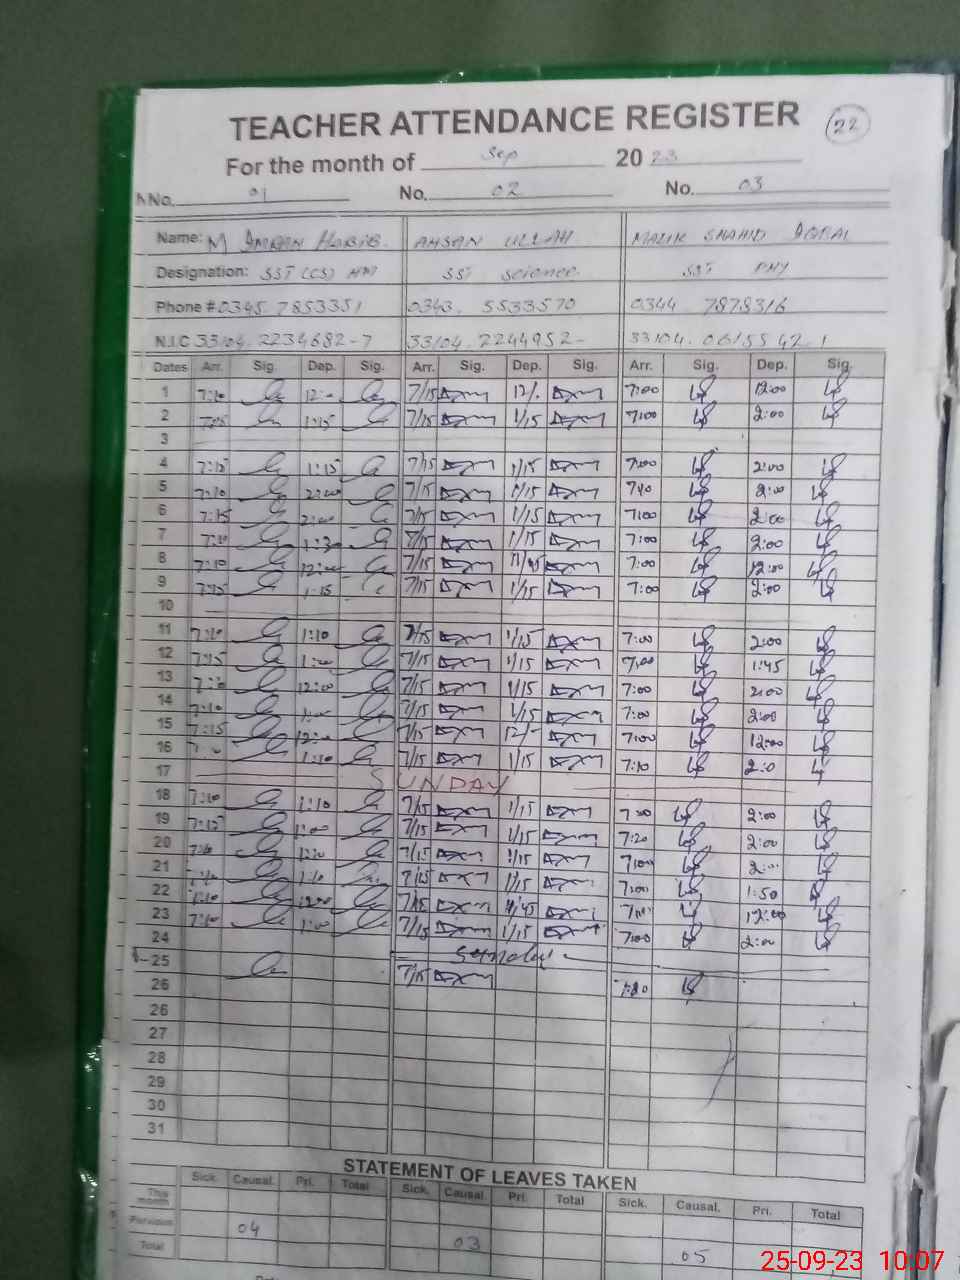 TEACHER ATTENDANCE REGISTER 22
For the month of Sep 20 23
No. 01 No. 02 No. 03
Name: M IMRAN HABIB. AHSAN ULLAH MALIK SHAHID IQBAL
Designation: SST (CS) HM SST Science SST PHY
Phone # 0345.7853351 0343. 5533570 0344 7878316
N.I.C 33104.2234682-7 33104.2244952- 33104.0615542.1
Dates Arr. Sig. Dep. Sig. Arr. Sig. Dep. Sig. Arr. Sig. Dep. Sig.
1 7:10 12:00 7/15 12/. 7:00 12:00
2 7:15 1:15 7/15 1/15 7:00 2:00
3
4 7:15 1:15 7/15 1/15 7:00 2:00
5 7:10 2:00 7/15 1/15 7:10 2:00
6 7:15 2:00 7/15 1/15 7:00 2:00
7 7:10 1:30 7/15 1/15 7:00 2:00
8 7:10 12:00 7/15 7:00 12:00
9 7:15 1:15 7/15 1/15 7:00 2:00
10
11 7:10 1:10 7/15 1/15 7:00 2:00
12 7:15 1:00 7/15 1/15 7:00 1:45
13 12:00 7/15 1/15 7:00 2:00
14 7:10 1:00 7/15 1/15 7:00 2:00
15 7:15 12:00 7/15 12/- 7:00 12:00
16 1:10 7/15 1/15 7:10 2:0
17 SUNDAY
18 7:10 1:10 7/15 1/15 7:00 2:00
19 7:15 1:00 7/15 1/15 7:20 2:00
20 7/15 1/15 7:00
21 7/15 1/15 7:00 1:50
22 7:10 12:00 7/15 12:00
23 7:10 1:00 7/15 1/15 7:00 2:00
24 Sunday
25 7/15
26
26
27
28
29
30
31
STATEMENT OF LEAVES TAKEN
Sick. Causal. Pri. Total Sick. Causal. Pri. Total Sick. Causal. Pri. Total
This month
Previous 04 03 05
Total
25-09-23 10:07